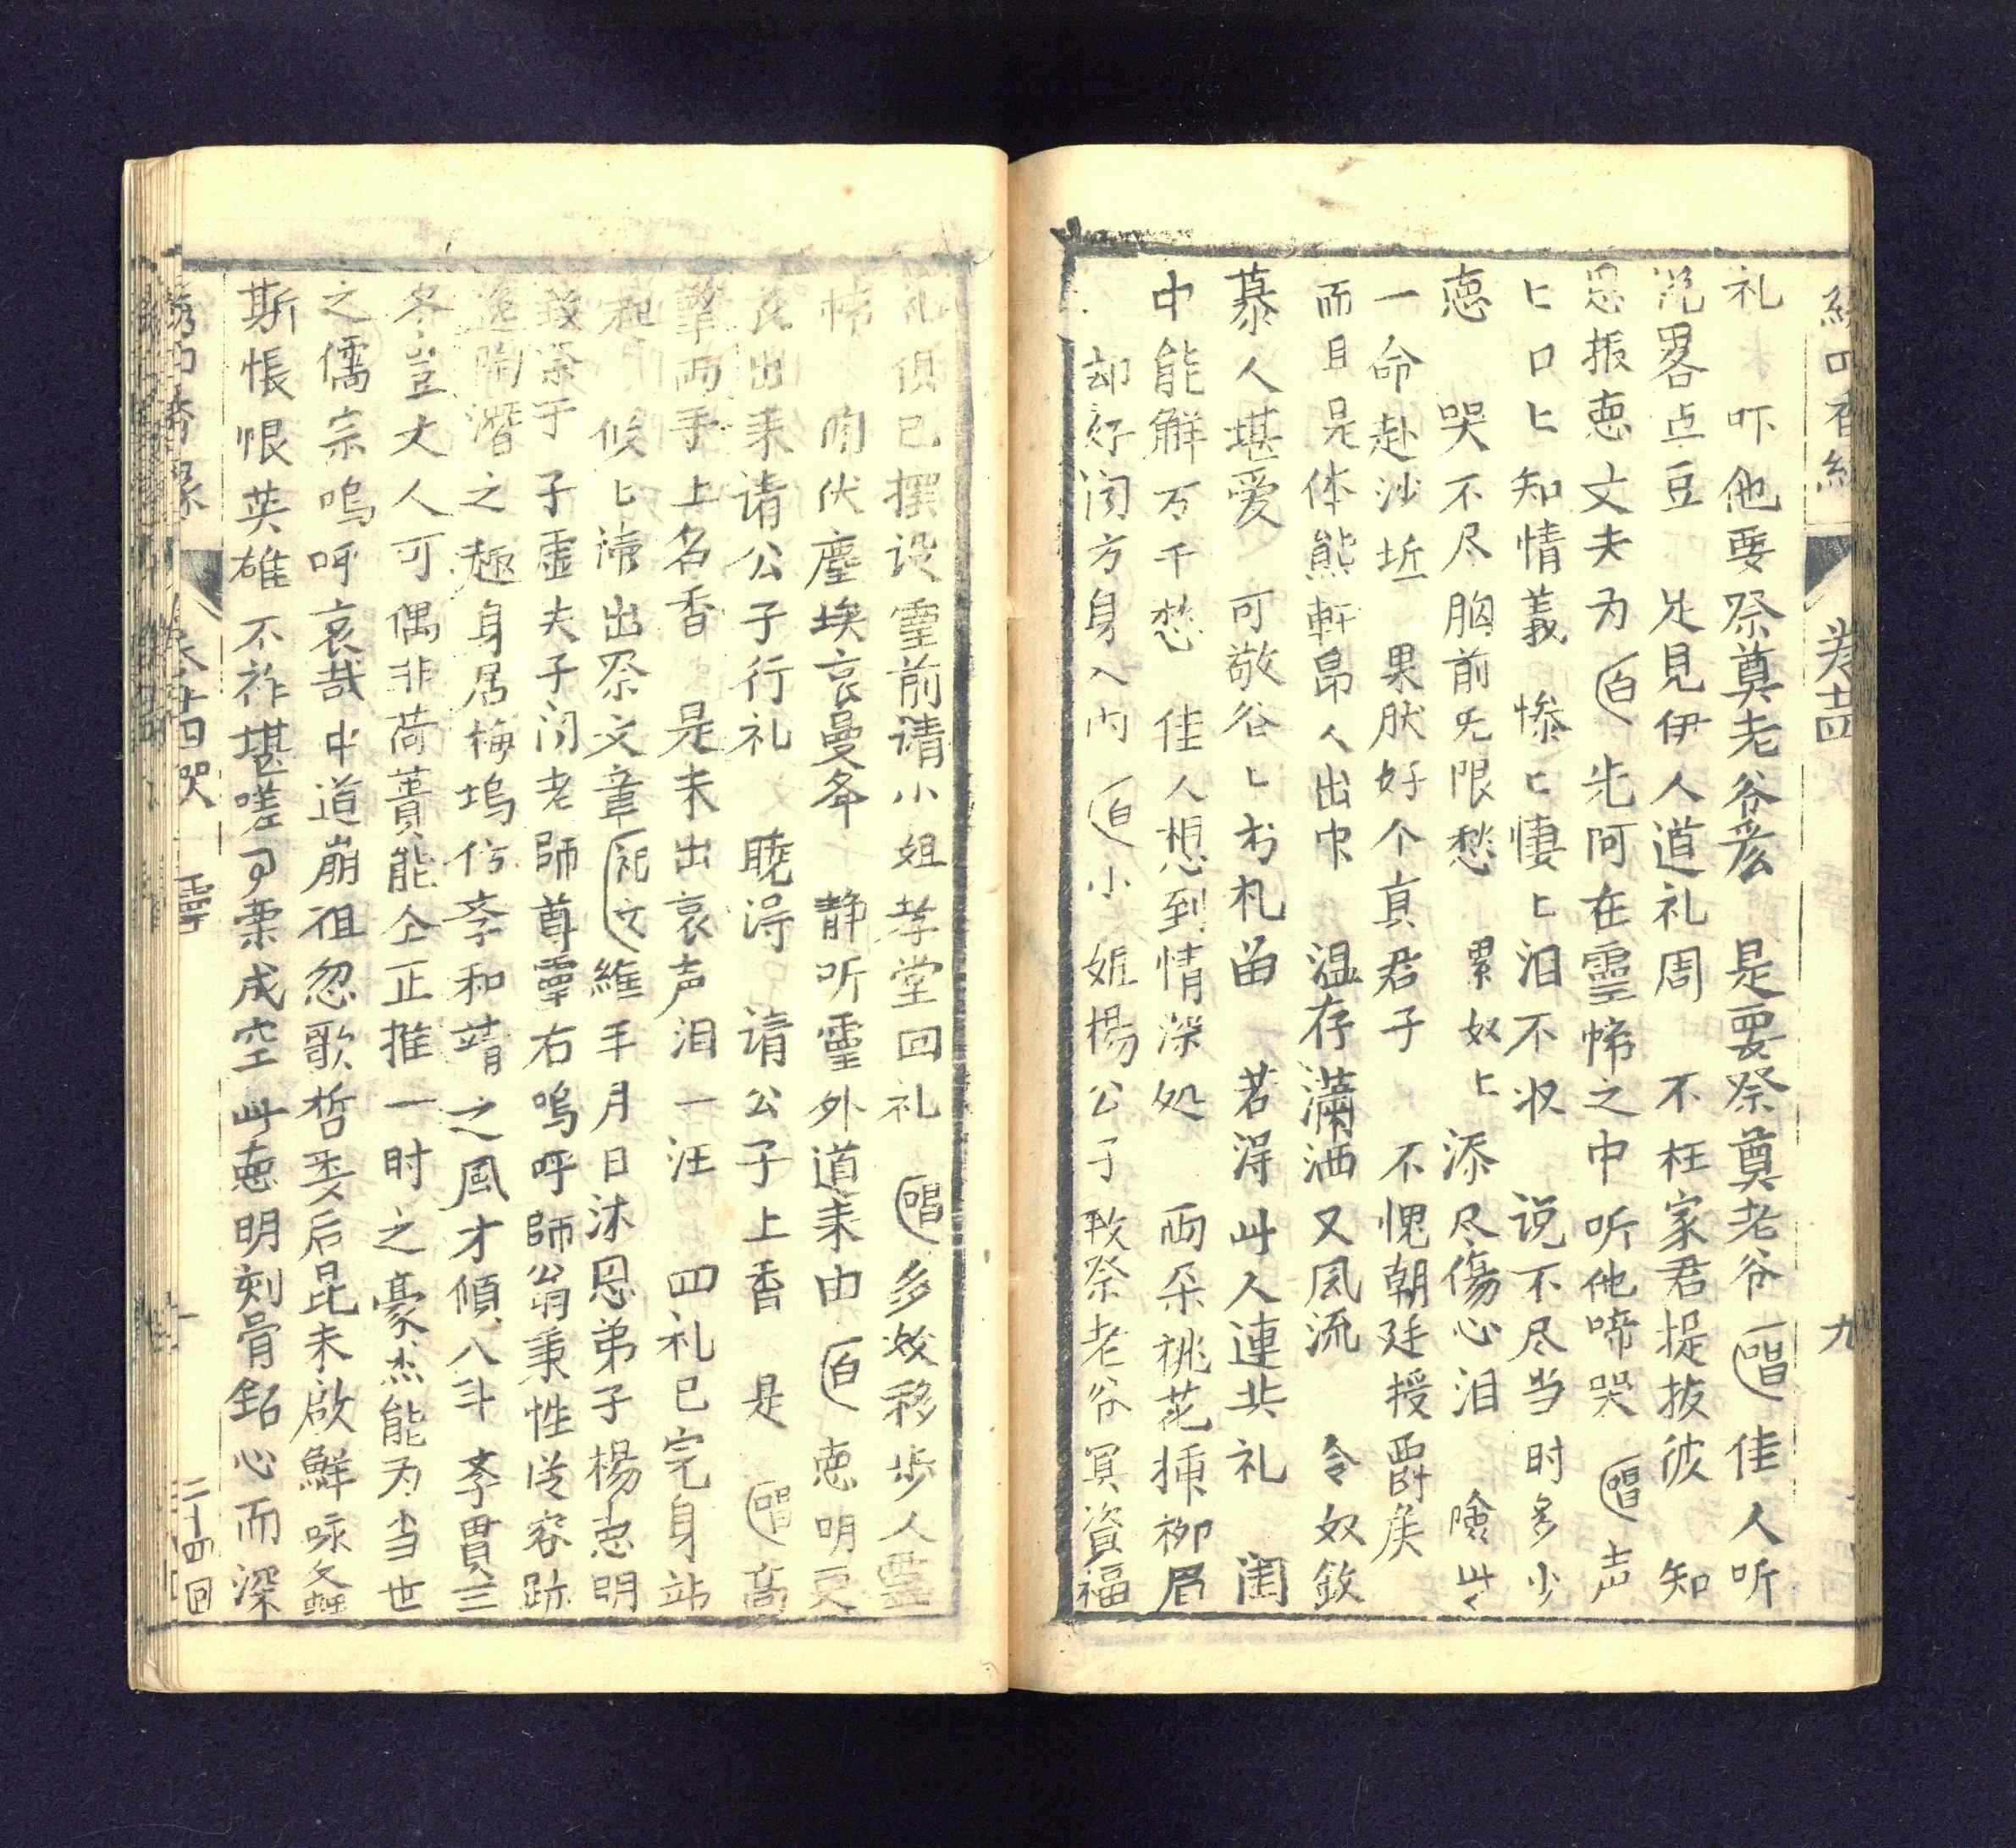 绣四香緣 卷十四 九
礼 吓他要祭奠老爷庅 是要祭奠老爷 唱 佳人听
说畧点豆 足見伊人道礼周 不枉家君提拔彼 知
恩振悳丈夫为 白 先阿在靈帏之中听他啼哭 唱 声
匕口匕知情義 惨匕悽匕泪不收 说不尽当时多少
悳 哭不尽胸前旡限愁 累奴匕添尽傷心泪 嗆些
一命赴沙坵 果肰好个真君子 不愧朝廷授爵侯
而且是体態軒昂人出中 温存瀟洒又风流 令奴敛
慕人堪爱 可敬爷匕书札畄 若淂此人連共礼 闺
中能解万千愁 佳人想到情深処 両朵桃花揷柳眉
却好闭方身入内 白 小姐楊公子致祭老爷冥資福
礼俱已摆设靈前请小姐孝堂回礼 唱 多姣移步人靈
帏 俯伏塵埃哀曼冬 静听靈外道来由 白 悳明更
衣出来请公子行礼 曉淂 请公子上香 是 唱 高
擎两手上名香 是未出哀声泪一汪 四礼已完身站
起 候匕讀出祭文章 祀文 維年月日沐恩弟子楊悳明
致祭于 子虚夫子闭老師尊靈右嗚呼師翁秉性從容跡
追陶潛之趣身居梅塢仿李和靖之風才傾八斗李貫三
冬豈丈人可偶非荷蕢能仝正推一时之豪杰能为当世
之儒宗嗚呼哀哉中道崩徂忽歌哲委后昆未啟鮮咏文
斯悵恨英雄不祚堪嗟可棄成空此悳明刻骨銘心而深
卷十四 哭靈 二十四回